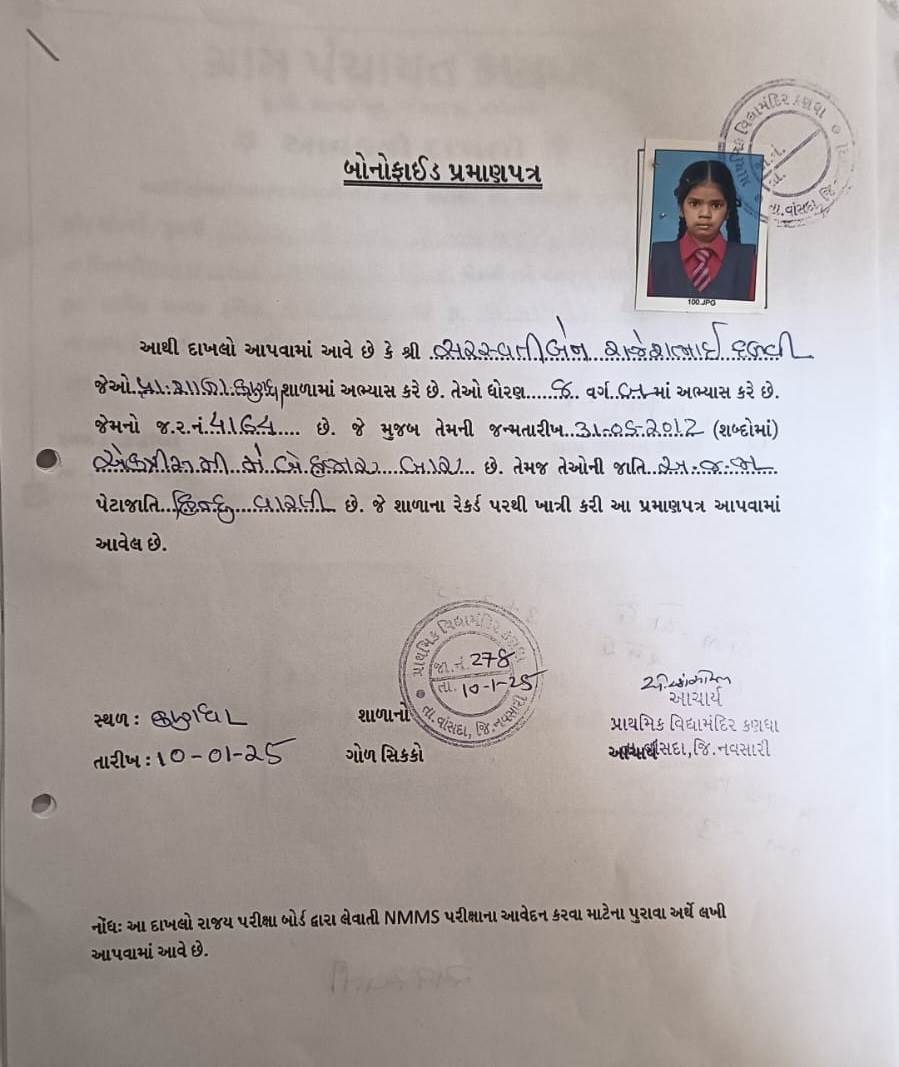 પ્રાથમિક વિદ્યામંદિર કણધા
તા.વાંસદા, જિ.
બોનોફાઈડ પ્રમાણપત્ર
100.JPG
આથી દાખલો આપવામાં આવે છે કે શ્રી સરસ્વતીબેન રાજેશભાઈ દળવી
જેઓ પ્રા.શાળા કણધા શાળામાં અભ્યાસ કરે છે. તેઓ ધોરણ વર્ગ માં અભ્યાસ કરે છે.
જેમનો જ.ર.નં. છે. જે મુજબ તેમની જન્મતારીખ 31-05-2012 (શબ્દોમાં)
એકત્રીસ મી મે બે હજાર બાર છે. તેમજ તેઓની જાતિ અ.જ.જા
પેટાજાતિ હિન્દુ વારલી છે. જે શાળાના રેકર્ડ પરથી ખાત્રી કરી આ પ્રમાણપત્ર આપવામાં
આવેલ છે.
પ્રાથમિક વિદ્યામંદિર કણધા
જા.નં. 278
તા. 10-1-25
તા.વાંસદા, જિ.નવસારી
આચાર્ય
સ્થળ : કણધા
શાળાનો
પ્રાથમિક વિદ્યામંદિર કણધા
તારીખ : 10-01-25
ગોળ સિક્કો
આચાર્ય
તા.વાંસદા, જિ.નવસારી
નોંધઃ આ દાખલો રાજય પરીક્ષા બોર્ડ દ્વારા લેવાતી NMMS પરીક્ષાના આવેદન કરવા માટેના પુરાવા અર્થે લખી
આપવામાં આવે છે.